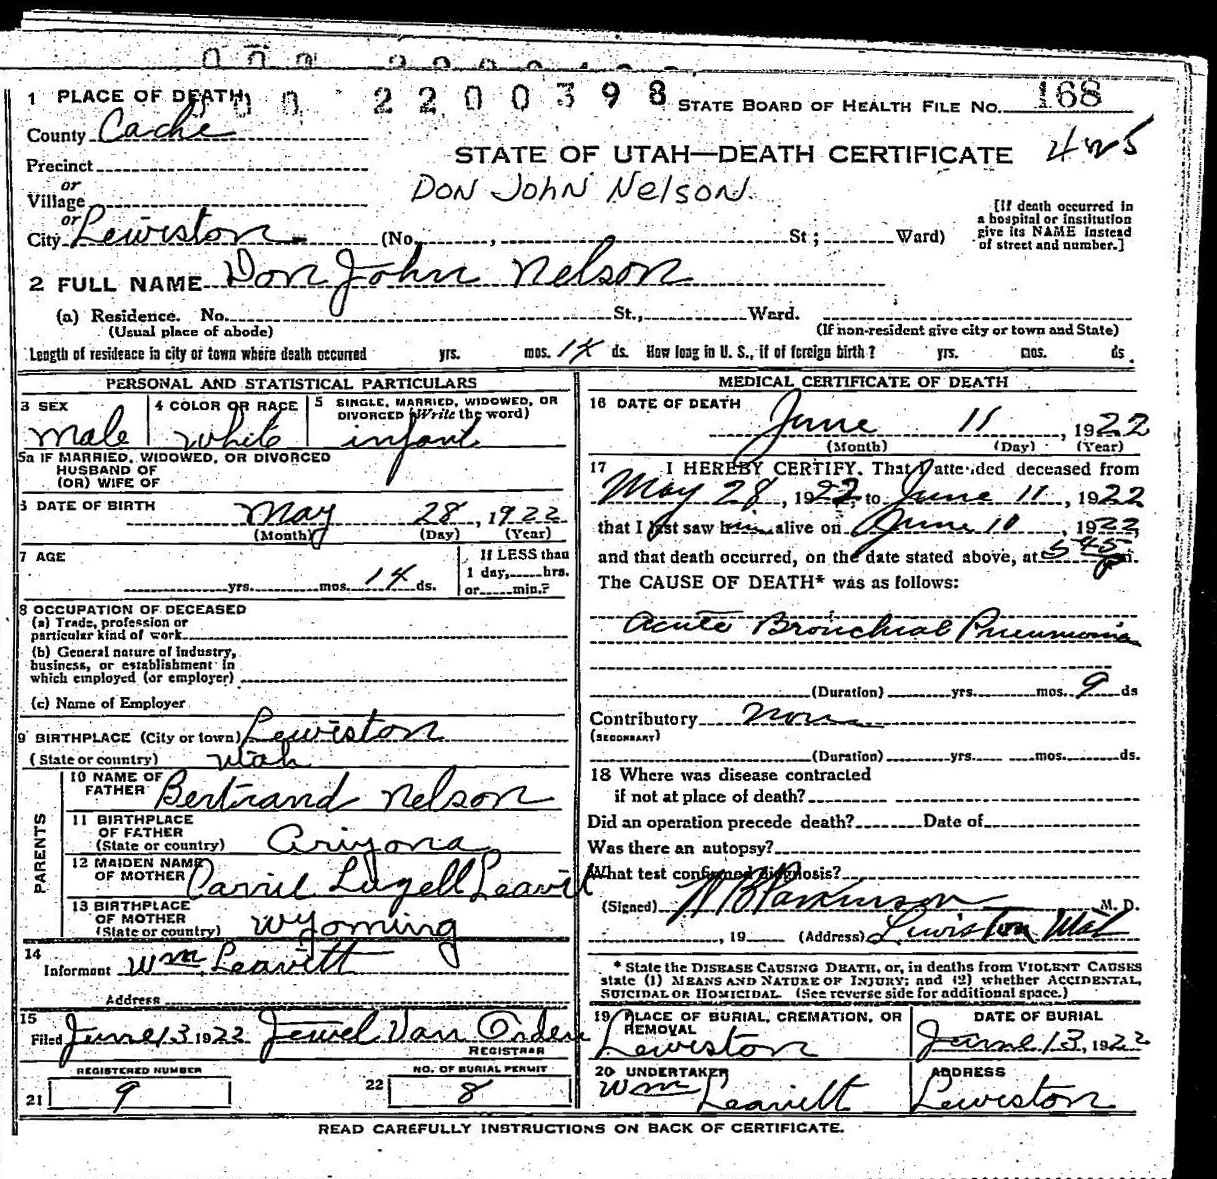 1 PLACE OF DEATH
000 2200398
STATE BOARD OF HEALTH FILE NO. 168
County Cache
STATE OF UTAH—DEATH CERTIFICATE
Precinct
or
Village
DON JOHN NELSON
or
City Lewiston (No. , St; Ward)
[If death occurred in
a hospital or institution
give its NAME instead
of street and number.]
2 FULL NAME Don John Nelson
(a) Residence. No. St., Ward.
(Usual place of abode)
(If non-resident give city or town and State)
Length of residence in city or town where death occurred yrs. mos. 14 ds. How long in U. S., if of foreign birth? yrs. mos. ds.
PERSONAL AND STATISTICAL PARTICULARS
3 SEX
Male
4 COLOR OR RACE
White
5 SINGLE, MARRIED, WIDOWED, OR
DIVORCED (Write the word)
infant
5a IF MARRIED, WIDOWED, OR DIVORCED
HUSBAND OF
(OR) WIFE OF
6 DATE OF BIRTH May 28, 1922
(Month) (Day) (Year)
7 AGE
yrs. mos. 14 ds.
If LESS than
1 day, hrs.
or min.?
8 OCCUPATION OF DECEASED
(a) Trade, profession or
particular kind of work
(b) General nature of industry,
business, or establishment in
which employed (or employer)
(c) Name of Employer
9 BIRTHPLACE (City or town) Lewiston
(State or country) Utah
PARENTS
10 NAME OF
FATHER Bertrand Nelson
11 BIRTHPLACE
OF FATHER
(State or country) Arizona
12 MAIDEN NAME
OF MOTHER Leavitt
13 BIRTHPLACE
OF MOTHER
(State or country) Wyoming
14
Informant Wm. Leavitt
Address
15
Filed June 13 1922 Jewel Van Orden
REGISTRAR
REGISTERED NUMBER
21 9
NO. OF BURIAL PERMIT
22 8
MEDICAL CERTIFICATE OF DEATH
16 DATE OF DEATH
June 11, 1922
(Month) (Day) (Year)
17 I HEREBY CERTIFY, That I attended deceased from
May 28, 1922, to June 11, 1922
that I last saw him alive on June 10, 1922,
and that death occurred, on the date stated above, at 5 45 p m.
The CAUSE OF DEATH* was as follows:
Acute Bronchial Pneumonia
(Duration) yrs. mos. 9 ds
Contributory None
(SECONDARY)
(Duration) yrs. mos. ds.
18 Where was disease contracted
if not at place of death?
Did an operation precede death? Date of
Was there an autopsy?
What test confirmed diagnosis?
(Signed) Parkinson M. D.
, 19 (Address) Lewiston Utah
* State the DISEASE CAUSING DEATH, or, in deaths from VIOLENT CAUSES
state (1) MEANS AND NATURE OF INJURY; and (2) whether ACCIDENTAL,
SUICIDAL OR HOMICIDAL. (See reverse side for additional space.)
19 PLACE OF BURIAL, CREMATION, OR
REMOVAL
Lewiston
DATE OF BURIAL
June 13, 1922
20 UNDERTAKER
Wm Leavitt
ADDRESS
Lewiston
READ CAREFULLY INSTRUCTIONS ON BACK OF CERTIFICATE.